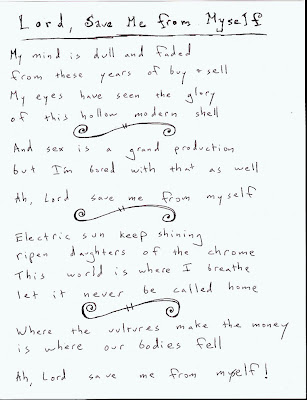 Lord, Save Me from Myself
My mind is dull and faded
from these years of buy + sell
My eyes have seen the glory
of this hollow modern shell
And sex is a grand production
but I'm bored with that as well
Ah, Lord save me from myself
Electric sun keep shining
ripen daughters of the chrome
This world is where I breathe
let it never be called home
Where the vultures make the money
is where our bodies fell
Ah, Lord save me from myself!